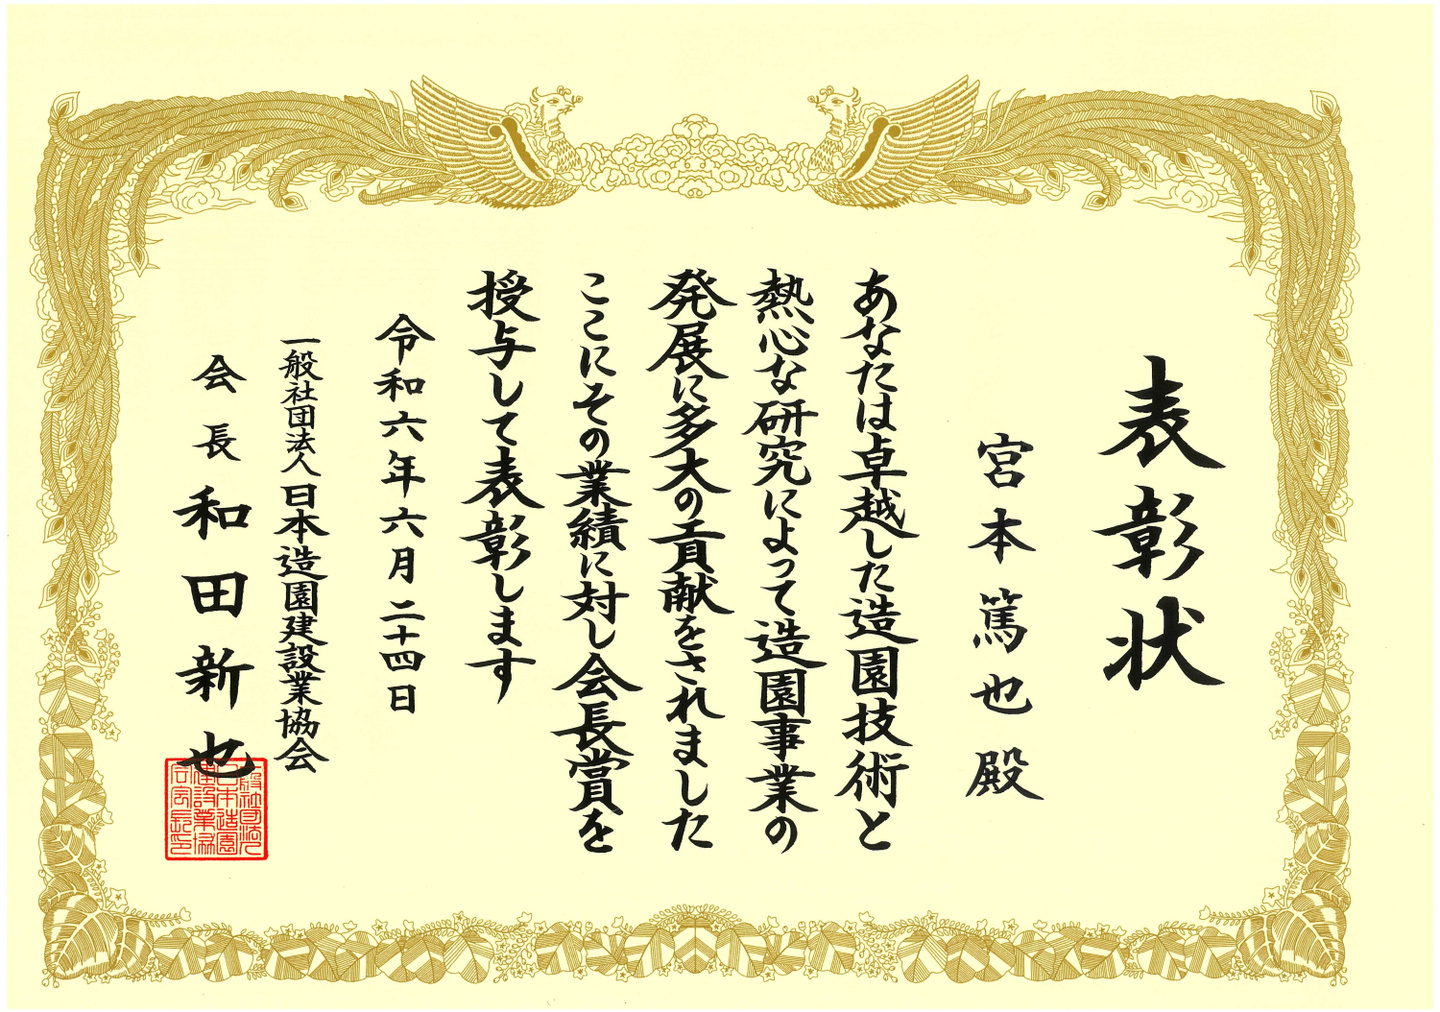 表彰状
宮本篤也殿
あなたは卓越した造園技術と
熱心な研究によって造園事業の
発展に多大の貢献をされました
ここにその業績に対し会長賞を
授与して表彰します
令和六年六月二十四日
一般社団法人日本造園建設業協会
会長和田新也
一般社団法人
日本造園
建設業協
会会長印